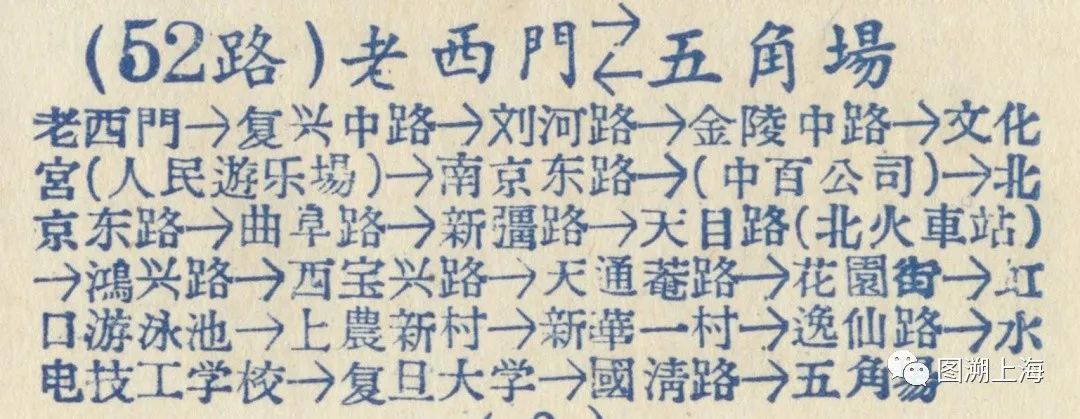 (52路)老西門⇄五角場
老西門→复兴中路→刘河路→金陵中路→文化
宮(人民遊乐場)→南京东路→(中百公司)→北
京东路→曲阜路→新彊路→天目路(北火車站)
→鴻兴路→西宝兴路→天通菴路→花園街→虹
口游泳池→上農新村→新華一村→逸仙路→水
电技工学校→复旦大学→國淸路→五角場
图溯上海